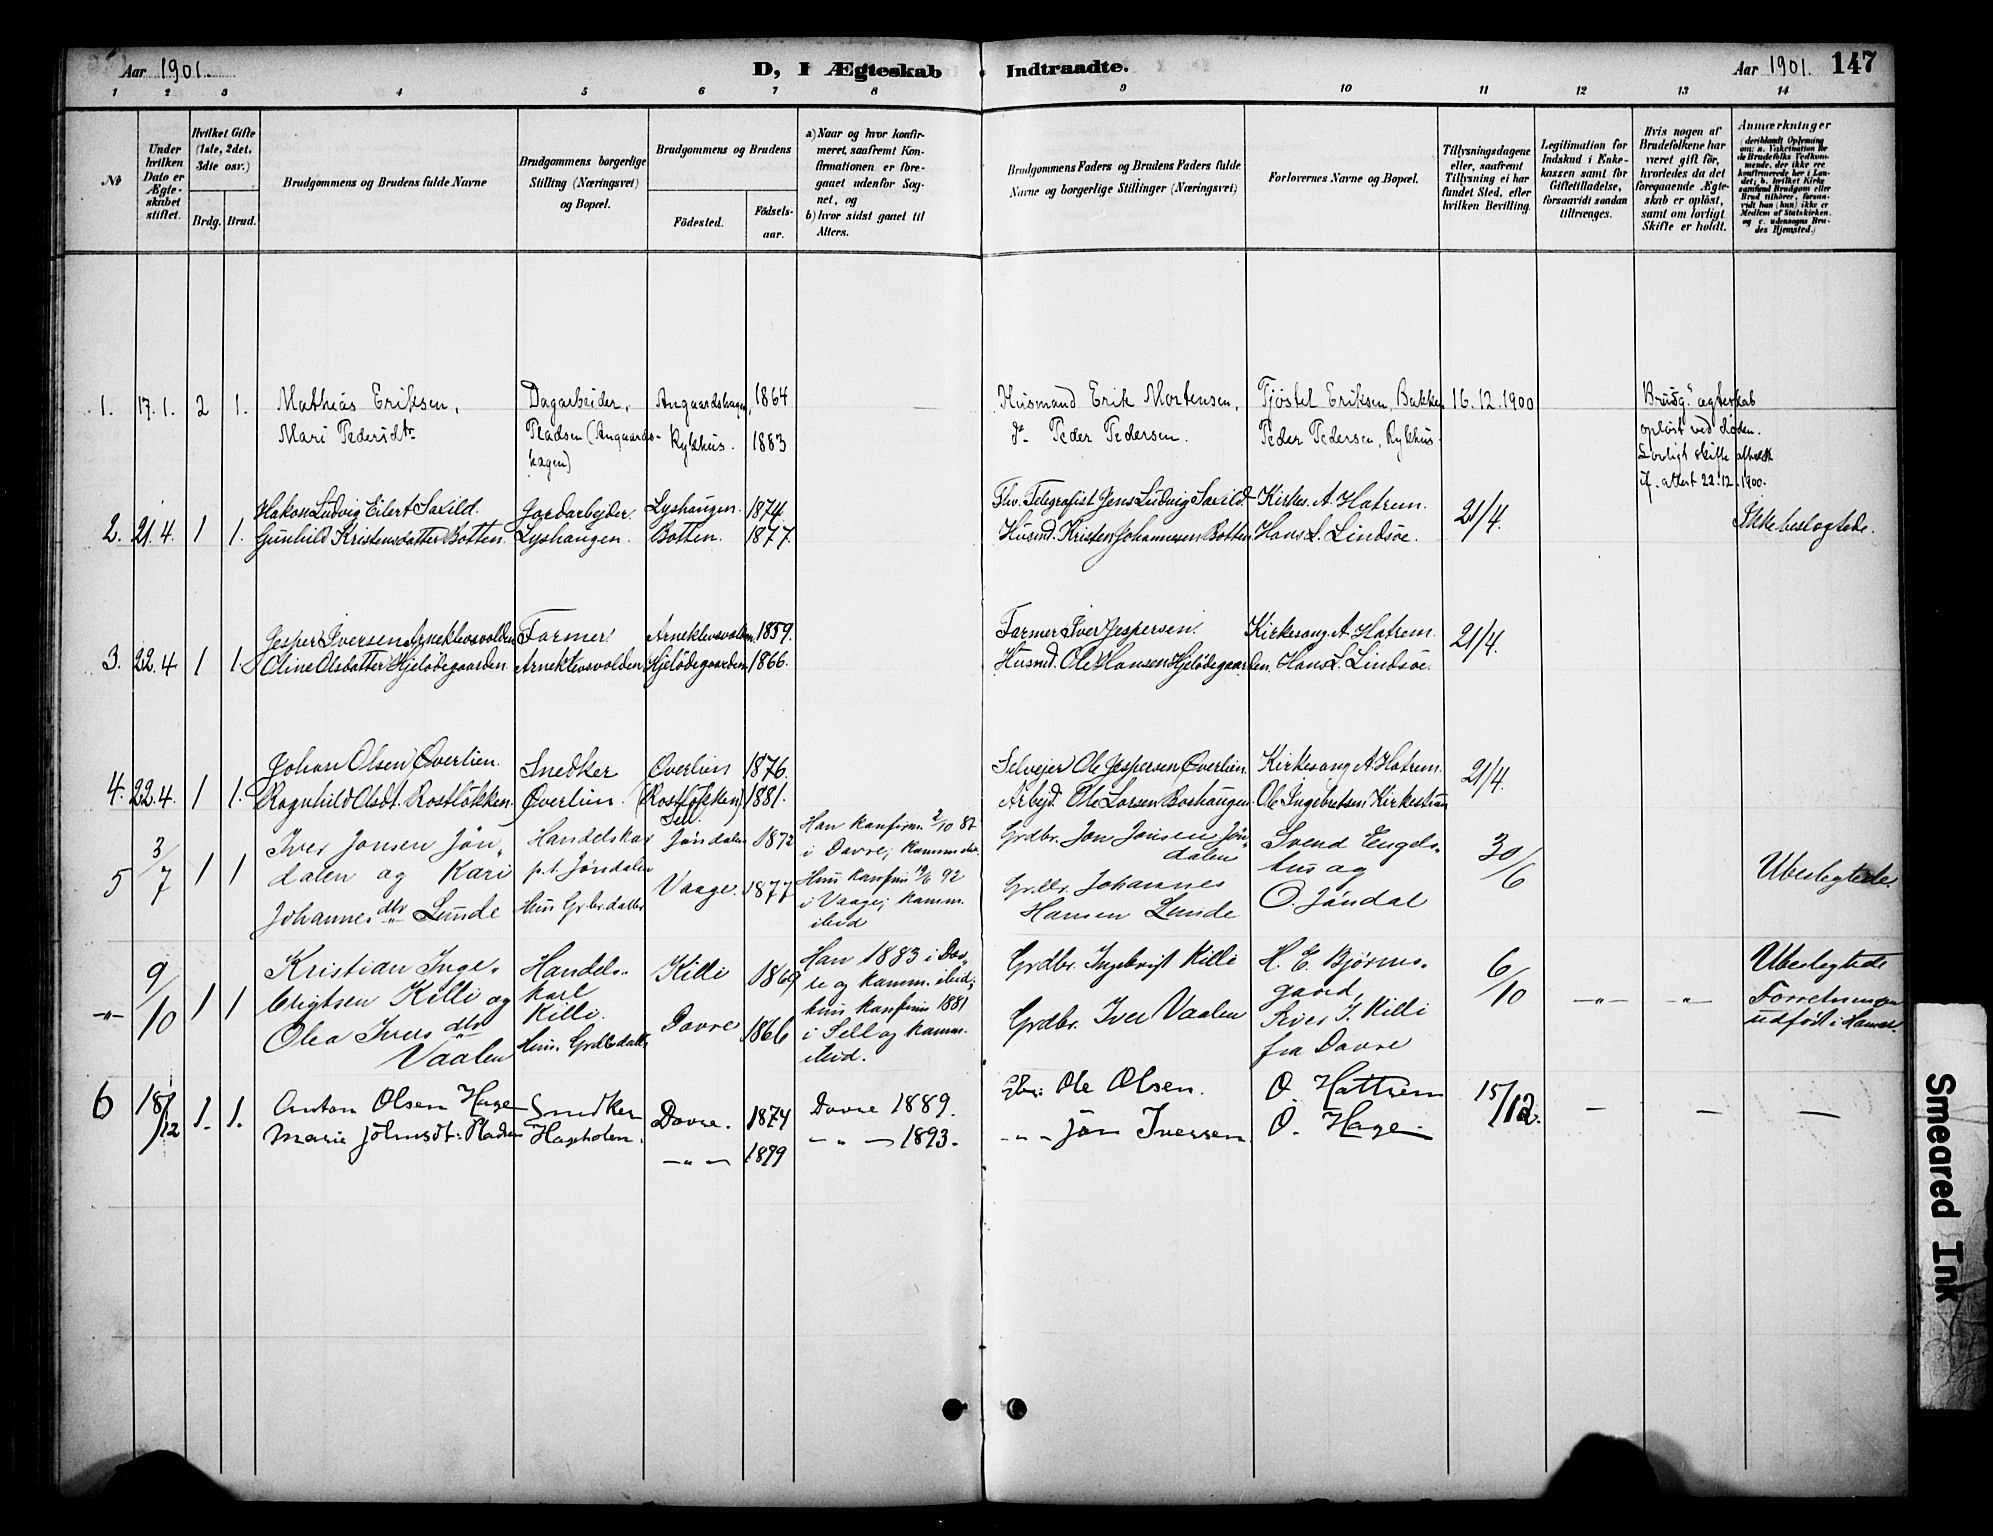 Aar 1901.
D, I Ægteskab Indtraadte.
Aar 1901. 147
1 2 3 4 5 6 7 8 9 10 11 12 13 14
№
Under hvilken Dato er Ægteskabet stiftet.
Hvilket Gifte (1ste, 2det, 3die osv.)
Brdg. Brud.
Brudgommens og Brudens fulde Navne
Brudgommens borgerlige Stilling (Næringsvei) og Bopæl.
Brudgommens og Brudens
Födested.
Födsels-aar.
a) Naar og hvor konfirmeret, saafremt Konfirmationen er foregaaet udenfor Sognet, og
b) hvor sidst gaaet til Alters.
Brudgommens Faders og Brudens Faders fulde Navne og borgerlige Stillinger (Næringsvei)
Forlovernes Navne og Bopæl.
Tillysningsdagene eller, saafremt Tillysning ei har fundet Sted, efter hvilken Bevilling.
Legitimation for Indskud i Enkekassen samt for Giftetilladelse, forsaavidt saadan tiltrænges.
Hvis nogen af Brudefolkene har været gift för, hvorledes da det foregaaende Ægteskab er oplöst, samt om lovligt Skifte er holdt.
Anmærkninger
1. 17. 1. 2 1. Mathias Eriksen, Dagarbeider, Angaardshagen, 1864 Husmand Erik Mortensen, Tjöstel Eriksen, Bakken 16.12.1900 Brudg.s ægteskab
Mari Pedersdtr Pladsen (Angaards- Rykhus. 1883 do Peder Pedersen. Peder Pedersen, Rykhus. oplöst ved döden.
hagen) Lovligt skifte afholdt
jf. attest 22.12.1900.
Hakon Ludvig Eilert Saxild. Jordarbejder. Lyshaugen. 1874 Fhv. Telegrafist Jens Ludvig Saxild. Kirkes. A. Hatrem.
2. 21. 4. 1 1. Gunhild Kristensdatter Botten. Lyshaugen. Botten. 1877. Husmd. Kristen Johannesen Botten. Hans L. Lindsöe. 21/4. Ikke beslægtede.
Jesper Iversen Arneklevsvolden Farmer Arneklevsvolden. 1859. Farmer Iver Jespersen. Kirkesang. A. Hatrem.
3. 22. 4 1 1. Oline Olsdatter Hjelödegaarden. Arneklevsvolden. Hjelödegaarden 1866. Husmd. Ole Hansen Hjelödegaarden. Hans L. Lindsöe. 21/4.
Johan Olsen Överlien. Snedker Överlien 1876. Selvejer Ole Jespersen Överlien. Kirkesang A. Hatrem.
4. 22. 4. 1 1. Ragnhild Olsdt. Rostlökken. Överlien. (Rostlökken) 1881. Arbejd. Ole Larsen Boshaugen Ole Ingebretsen Kirkestuen 21/4.
Sell.
5 3/7 1 1 Iver Jonsen Jön- Handelskar Jöndalen 1872 Han konfirm. 2/10 87 Grdbr. Jon Jonsen Jön- Svend Engels- 30/6
dalen og Kari p.t. Jöndalen i Dovre, komm. dalen hus og Ubeslegtede.
Johannesdtr Lunde Hun Grbr.datter Vaage. 1877 Hun konfirm 92 Johannes O. Jöndal
i Vaage; komm. Hansen Lunde
ibid
-"- 9/10 1 1 Kristian Inge- Handels- Killi 1869 Han 1883 i Dov- Grdbr. Ingebrigt Killi H. E. Bjørns- 6/10 -"- -"- Ubeslegtede
brigtsen Killi og karl re og komm. ibid; gaard, Forretningen
Olea Iversdtr Killi. Dovre 1866 hun konfirm 1881 Grdbr. Iver Vaalen Iver I. Killi udført i
Vaalen i Sell og komm. fra Dovre
ibid.
6 18/12 1. 1. Anton Olsen Hage Snedker Dovre. 1874 Dovre 1889. Gbr: Ole Olsen. O. Hattrem 15/12. — — —
Marie Johnsdt: Pladsen Hageholen. -"- 1879 -"- 1893. -"- Jön Iversen O. Hage
Smeared Ink